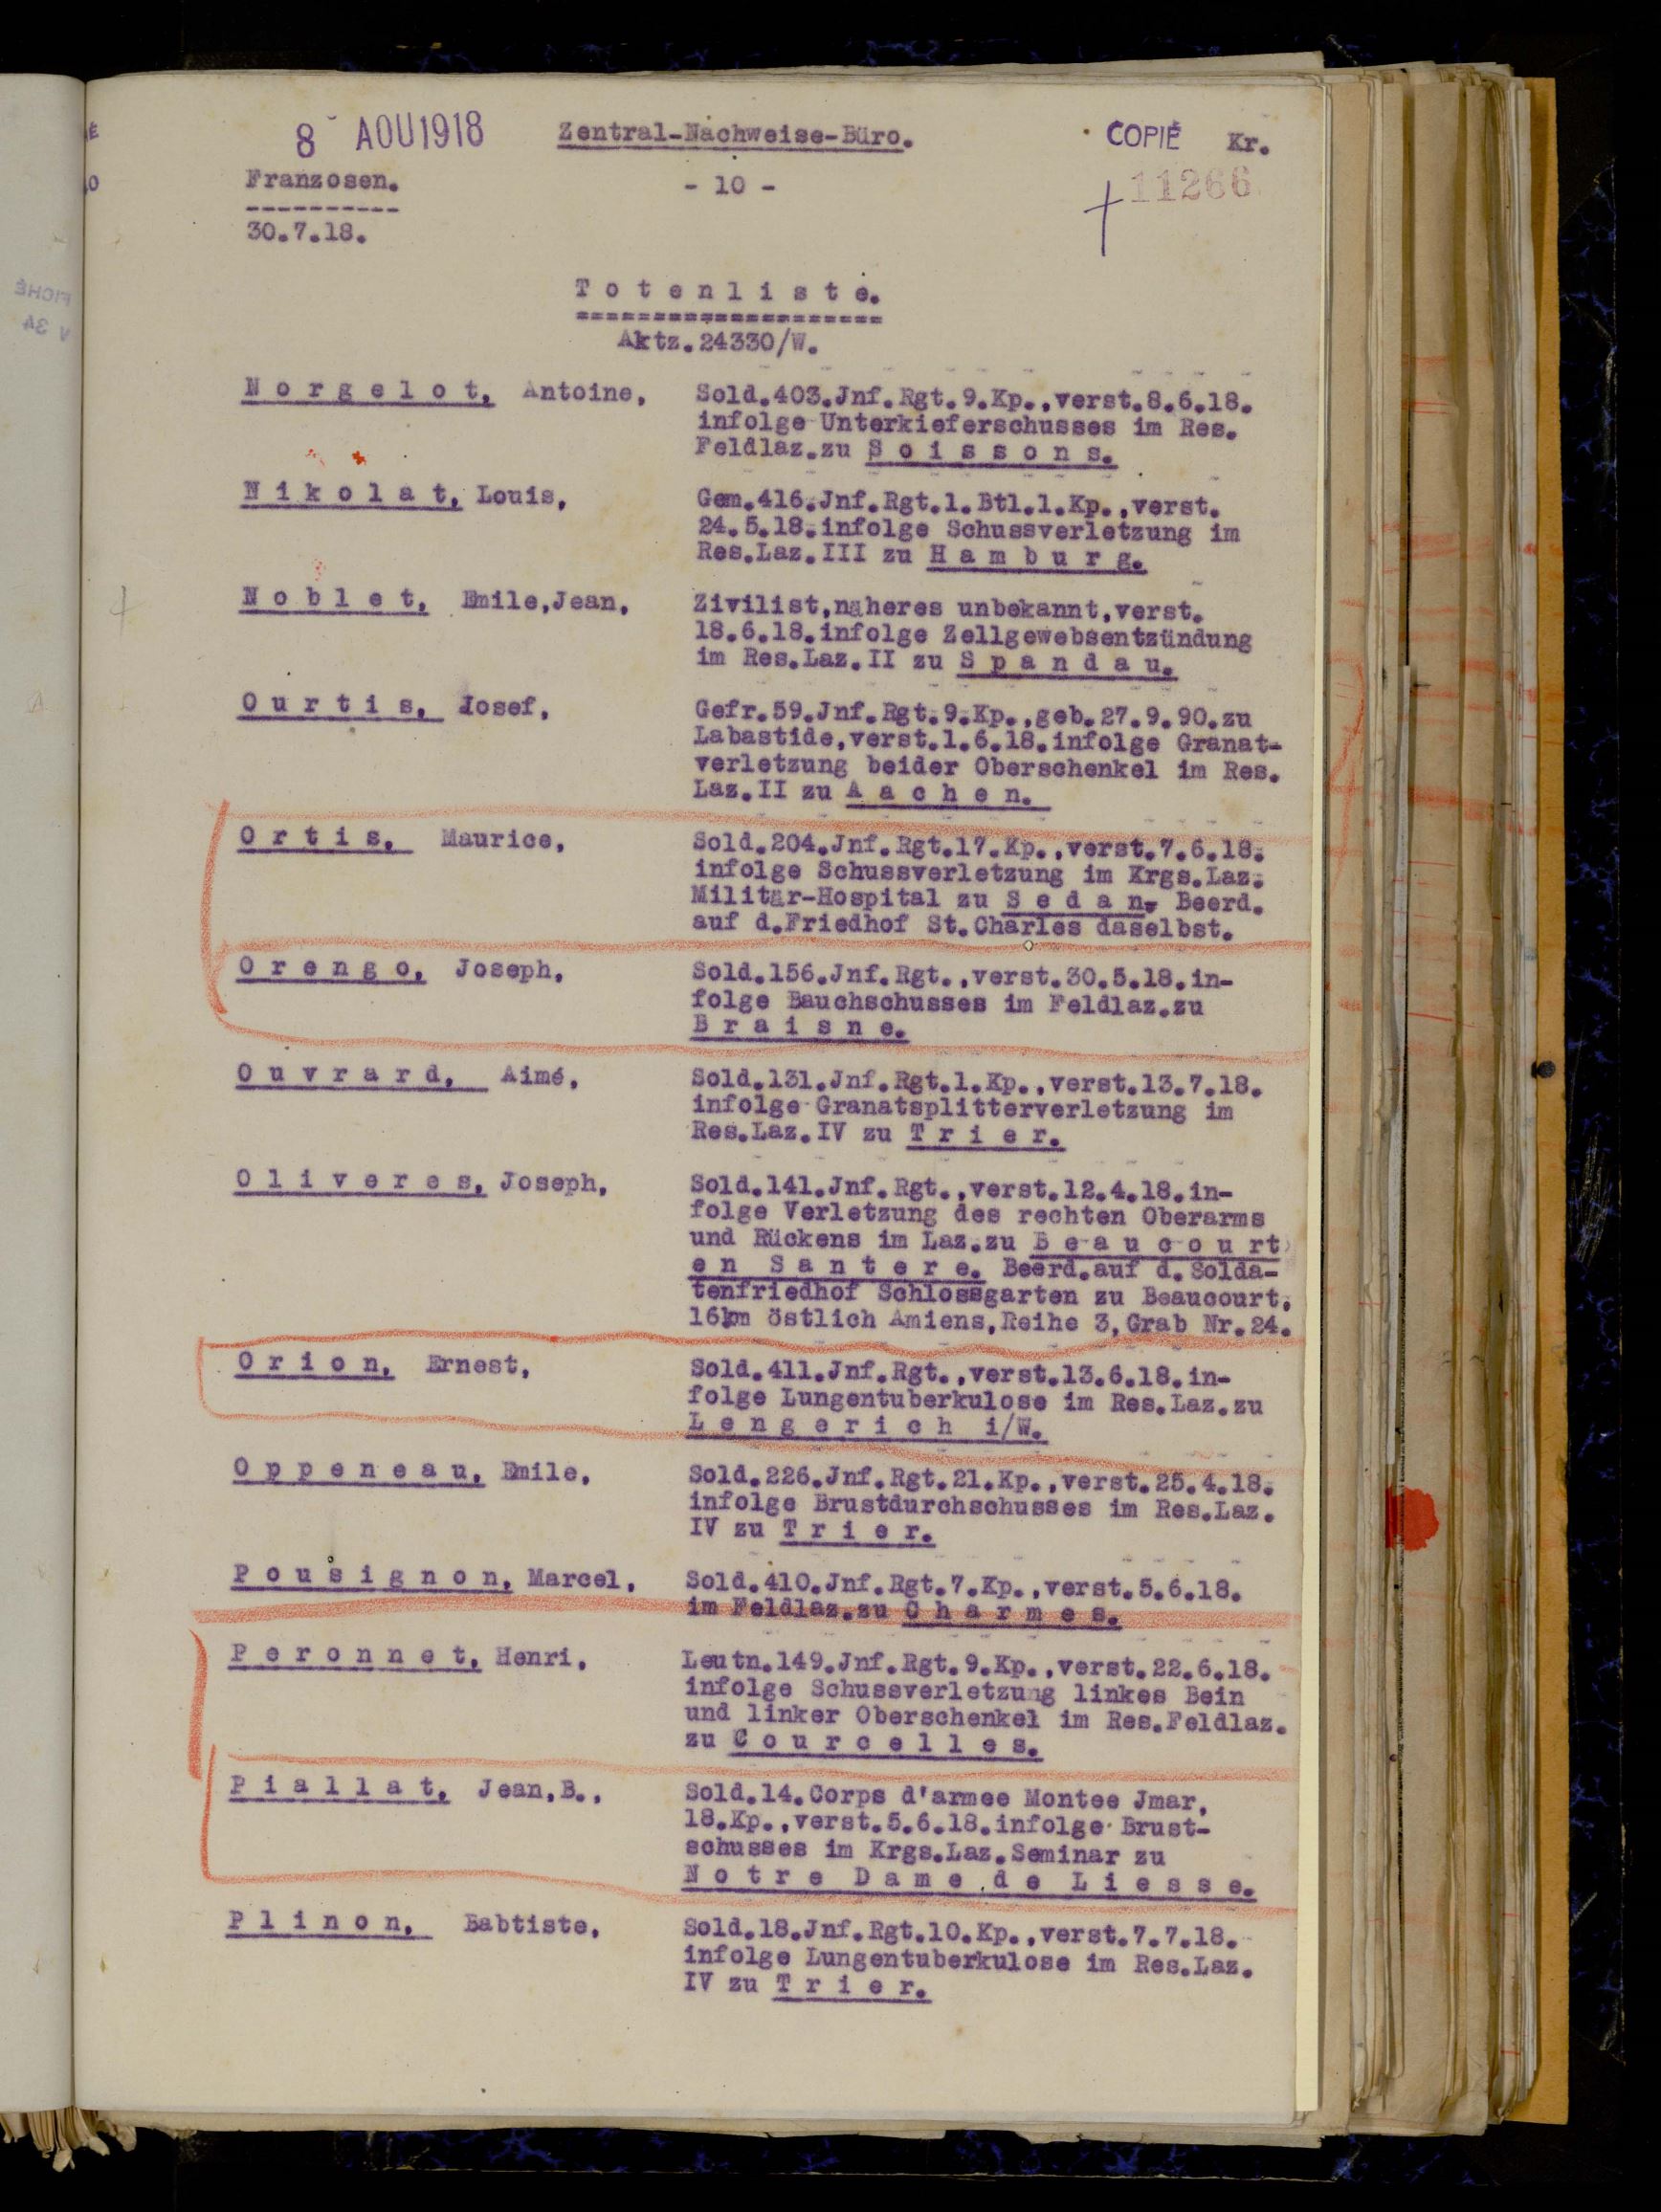 8 AOU 1918 Zentral-Nachweise-Büro. COPIÉ Kr.
Franzosen. - 10 - 11266
30.7.18.
Totenliste.
Aktz.24330/W.
Norgelot, Antoine, Sold.403.Jnf.Rgt.9.Kp.,verst.8.6.18.
infolge Unterkieferschusses im Res.
Feldlaz.zu Soissons.
Nikolat, Louis, Gem.416.Jnf.Rgt.1.Btl.1.Kp.,verst.
24.5.18.infolge Schussverletzung im
Res.Laz.III zu Hamburg.
Noblet, Emile,Jean, Zivilist,näheres unbekannt,verst.
18.6.18.infolge Zellgewebsentzündung
im Res.Laz.II zu Spandau.
Ourtis, Josef, Gefr.59.Jnf.Rgt.9.Kp.,geb.27.9.90.zu
Labastide,verst.1.6.18.infolge Granat-
verletzung beider Oberschenkel im Res.
Laz.II zu Aachen.
Ortis, Maurice, Sold.204.Jnf.Rgt.17.Kp.,verst.7.6.18.
infolge Schussverletzung im Krgs.Laz.
Militär-Hospital zu Sedan. Beerd.
auf d.Friedhof St.Charles daselbst.
Orengo, Joseph, Sold.156.Jnf.Rgt.,verst.30.5.18.in-
folge Bauchschusses im Feldlaz.zu
Braisne.
Ouvrard, Aimé, Sold.131.Jnf.Rgt.1.Kp.,verst.13.7.18.
infolge Granatsplitterverletzung im
Res.Laz.IV zu Trier.
Oliveres, Joseph, Sold.141.Jnf.Rgt.,verst.12.4.18.in-
folge Verletzung des rechten Oberarms
und Rückens im Laz.zu Beaucourt
en Santere. Beerd.auf d.Solda-
tenfriedhof Schlossgarten zu Beaucourt,
16km östlich Amiens,Reihe 3,Grab Nr.24.
Orion, Ernest, Sold.411.Jnf.Rgt.,verst.13.6.18.in-
folge Lungentuberkulose im Res.Laz.zu
Lengerich i/W.
Oppeneau, Emile, Sold.226.Jnf.Rgt.21.Kp.,verst.25.4.18.
infolge Brustdurchschusses im Res.Laz.
IV zu Trier.
Pousignon, Marcel, Sold.410.Jnf.Rgt.7.Kp.,verst.5.6.18.
im Feldlaz.zu Charmes.
Peronnet, Henri, Leutn.149.Jnf.Rgt.9.Kp.,verst.22.6.18.
infolge Schussverletzung linkes Bein
und linker Oberschenkel im Res.Feldlaz.
zu Courcelles.
Piallat, Jean,B., Sold.14.Corps d'armee Montee Jmar,
18.Kp.,verst.5.6.18.infolge Brust-
schusses im Krgs.Laz.Seminar zu
Notre Dame de Liesse.
Plinon, Babtiste, Sold.18.Jnf.Rgt.10.Kp.,verst.7.7.18.
infolge Lungentuberkulose im Res.Laz.
IV zu Trier.